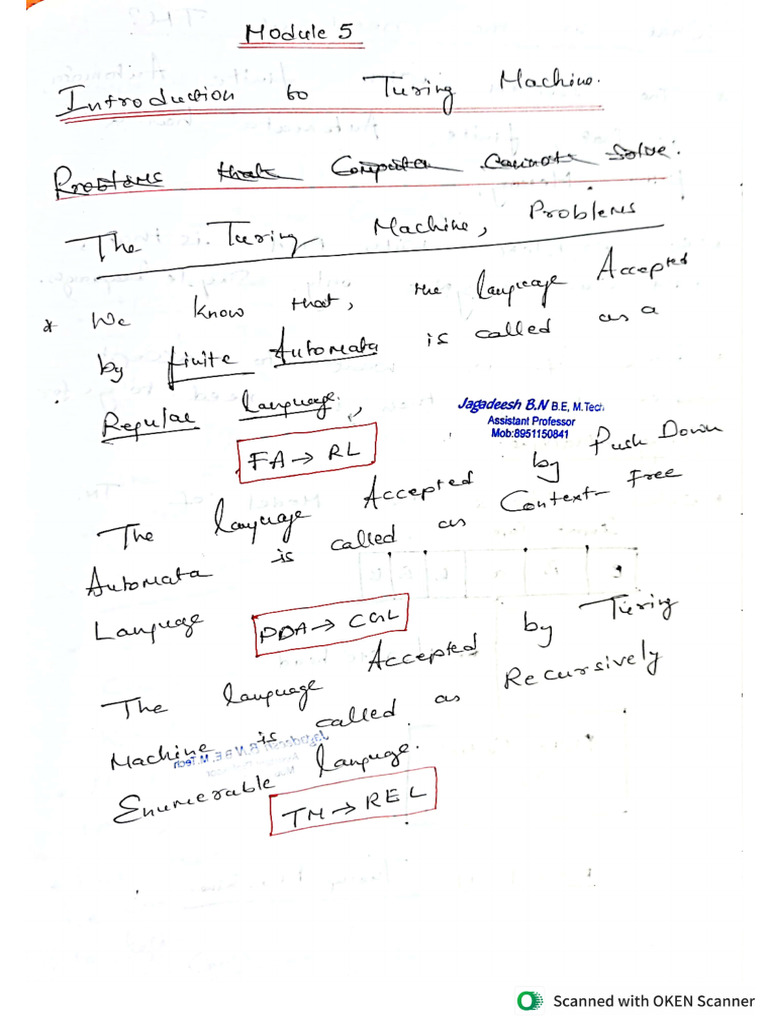 Module 5
Introduction to Turing Machine.
Problems that Computer Cannot Solve.
The Turing Machine, Problems
* We know that, the language Accepted
by finite Automata is called as a
Regular language,
Jagadeesh B.N B.E, M.Tech
Assistant Professor
Mob:8951150841
FA → RL
The language Accepted by Push Down
Automata is called as Context-Free
Language
PDA → CGL
The language Accepted by Turing
Machine is called as Recursively
Enumerable language.
TM → REL
Scanned with OKEN Scanner